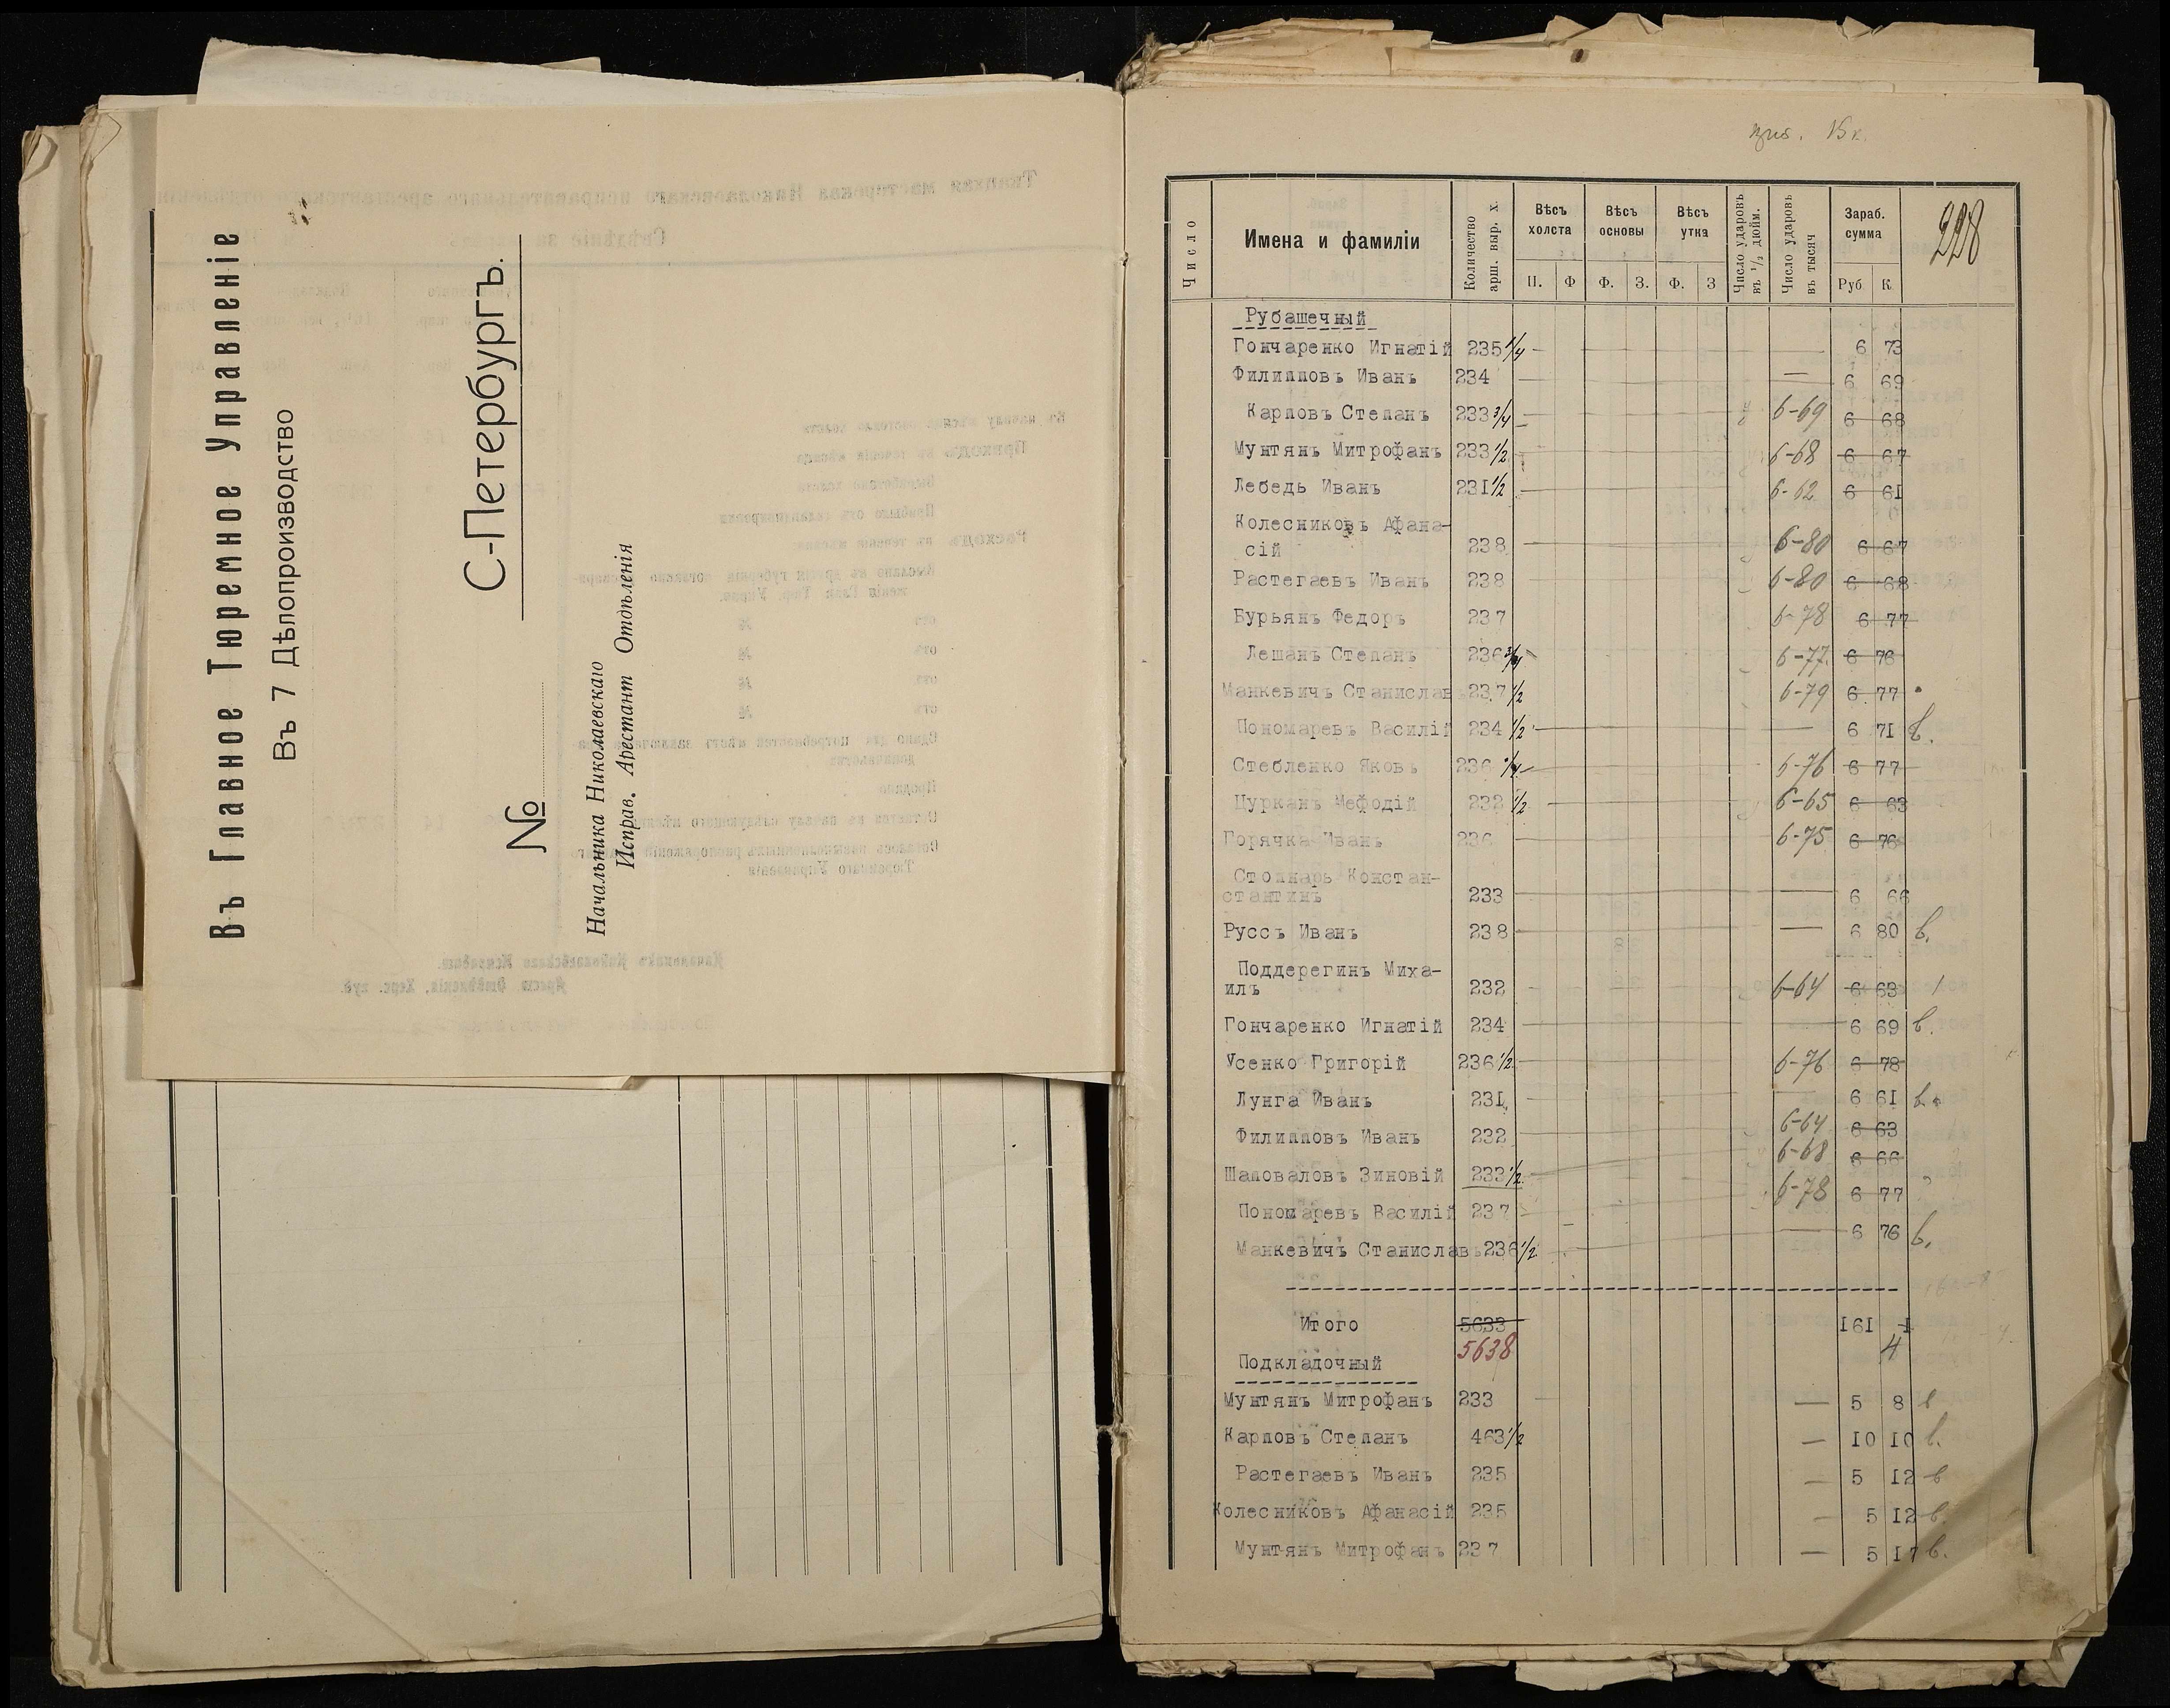 Въ Главное Тюремное Управленіе
Въ 7 Дѣлопроизводство
С-Петербургъ.
№
Начальника Николаевскаго
Исправ. Арестант Отдѣленія
15 к.
228
Число
Имена и фамиліи
Количество арш. выр. х.
Вѣсъ холста
Вѣсъ основы
Вѣсъ утка
Число ударовъ въ 1/2 дюйм.
Число ударовъ въ тысяч
Зараб. сумма
П. Ф Ф. З. Ф. З Руб. К.
Рубашечный
Гончаренко Игнатій 235 1/4 — 6 73
Филипповъ Иванъ 234 — 6 69
Карповъ Степанъ 233 3/4 6-69 6 68
Мунтянъ Митрофанъ 233 1/2 6-68 6 67
Лебедь Иванъ 231 1/2 6-62 6 61
Колесниковъ Афана-
сій 238 6-80 6 67
Растегаевъ Иванъ 238 6-80 6 68
Бурьянъ Федоръ 237 6-78 6 77
Лешанъ Степанъ 236 3/4 6-77 6 76
Манкевичъ Станиславъ 237 1/2 6-79 6 77
Пономаревъ Василій 234 1/2 — 6 71 в.
Стебленко Яковъ 236 1/4 6-76 6 77
Цурканъ Мефодій 232 1/2 6-65 6 63
Горячка Иванъ 236 6-75 6 76
Столнарь Констан-
стантинъ 233 — 6 66
Руссъ Иванъ 238 — 6 80 в.
Поддерегинъ Миха-
илъ 232 6-64 6 63
Гончаренко Игнатій 234 — 6 69 в.
Усенко Григорій 236 1/2 6-76 6 78
Лунга Иванъ 231 — 6 61 в.
Филипповъ Иванъ 232 6-64 6 63
Шаповаловъ Зиновій 233 1/2 6-68 6 66
Пономаревъ Василій 237 6-78 6 77
Манкевичъ Станиславъ 236 1/2 — 6 76 в.
Итого 5633 161 1
5638 4
Подкладочный
Мунтянъ Митрофанъ 233 — 5 8 в
Карповъ Степанъ 463 1/2 — 10 10 в.
Растегаевъ Иванъ 235 — 5 12 в
Колесниковъ Афанасій 235 — 5 12 в.
Мунтянъ Митрофанъ 237 — 5 17 в.